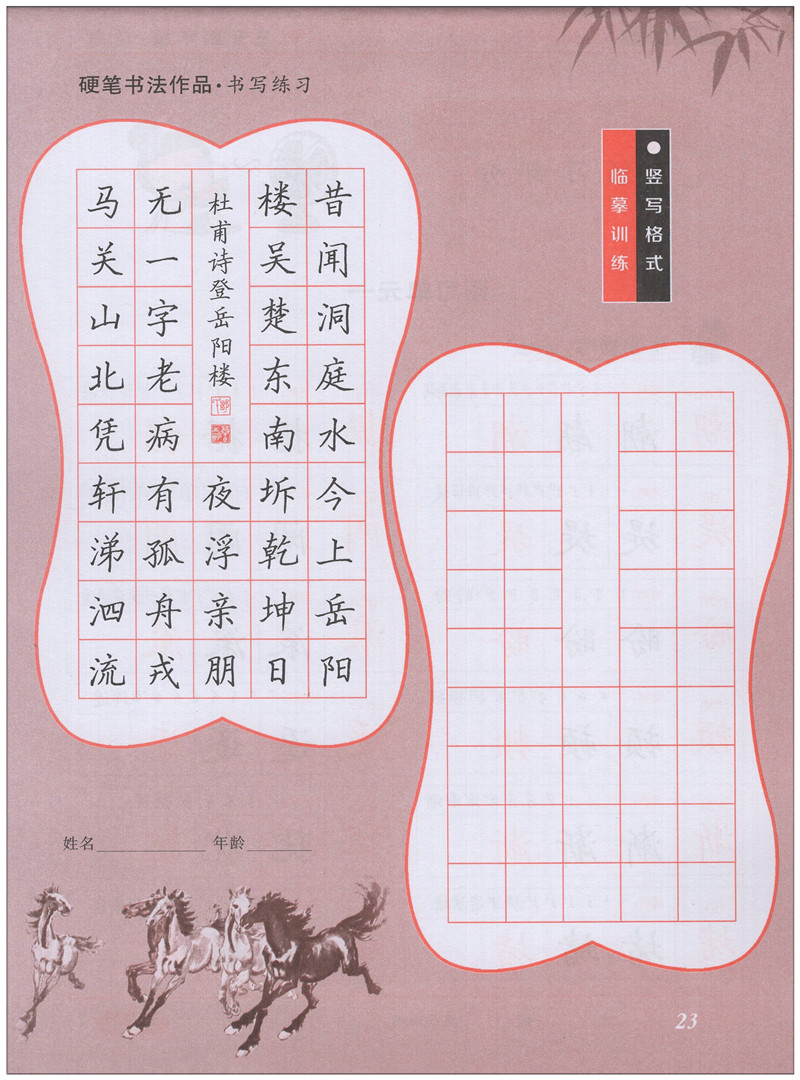 硬笔书法作品·书写练习
竖写格式
临摹训练
昔闻洞庭水今上岳阳
楼吴楚东南坼乾坤日
夜浮亲朋
无一字老病有孤舟戎
马关山北凭轩涕泗流
杜甫诗登岳阳楼
姓名 年龄
23